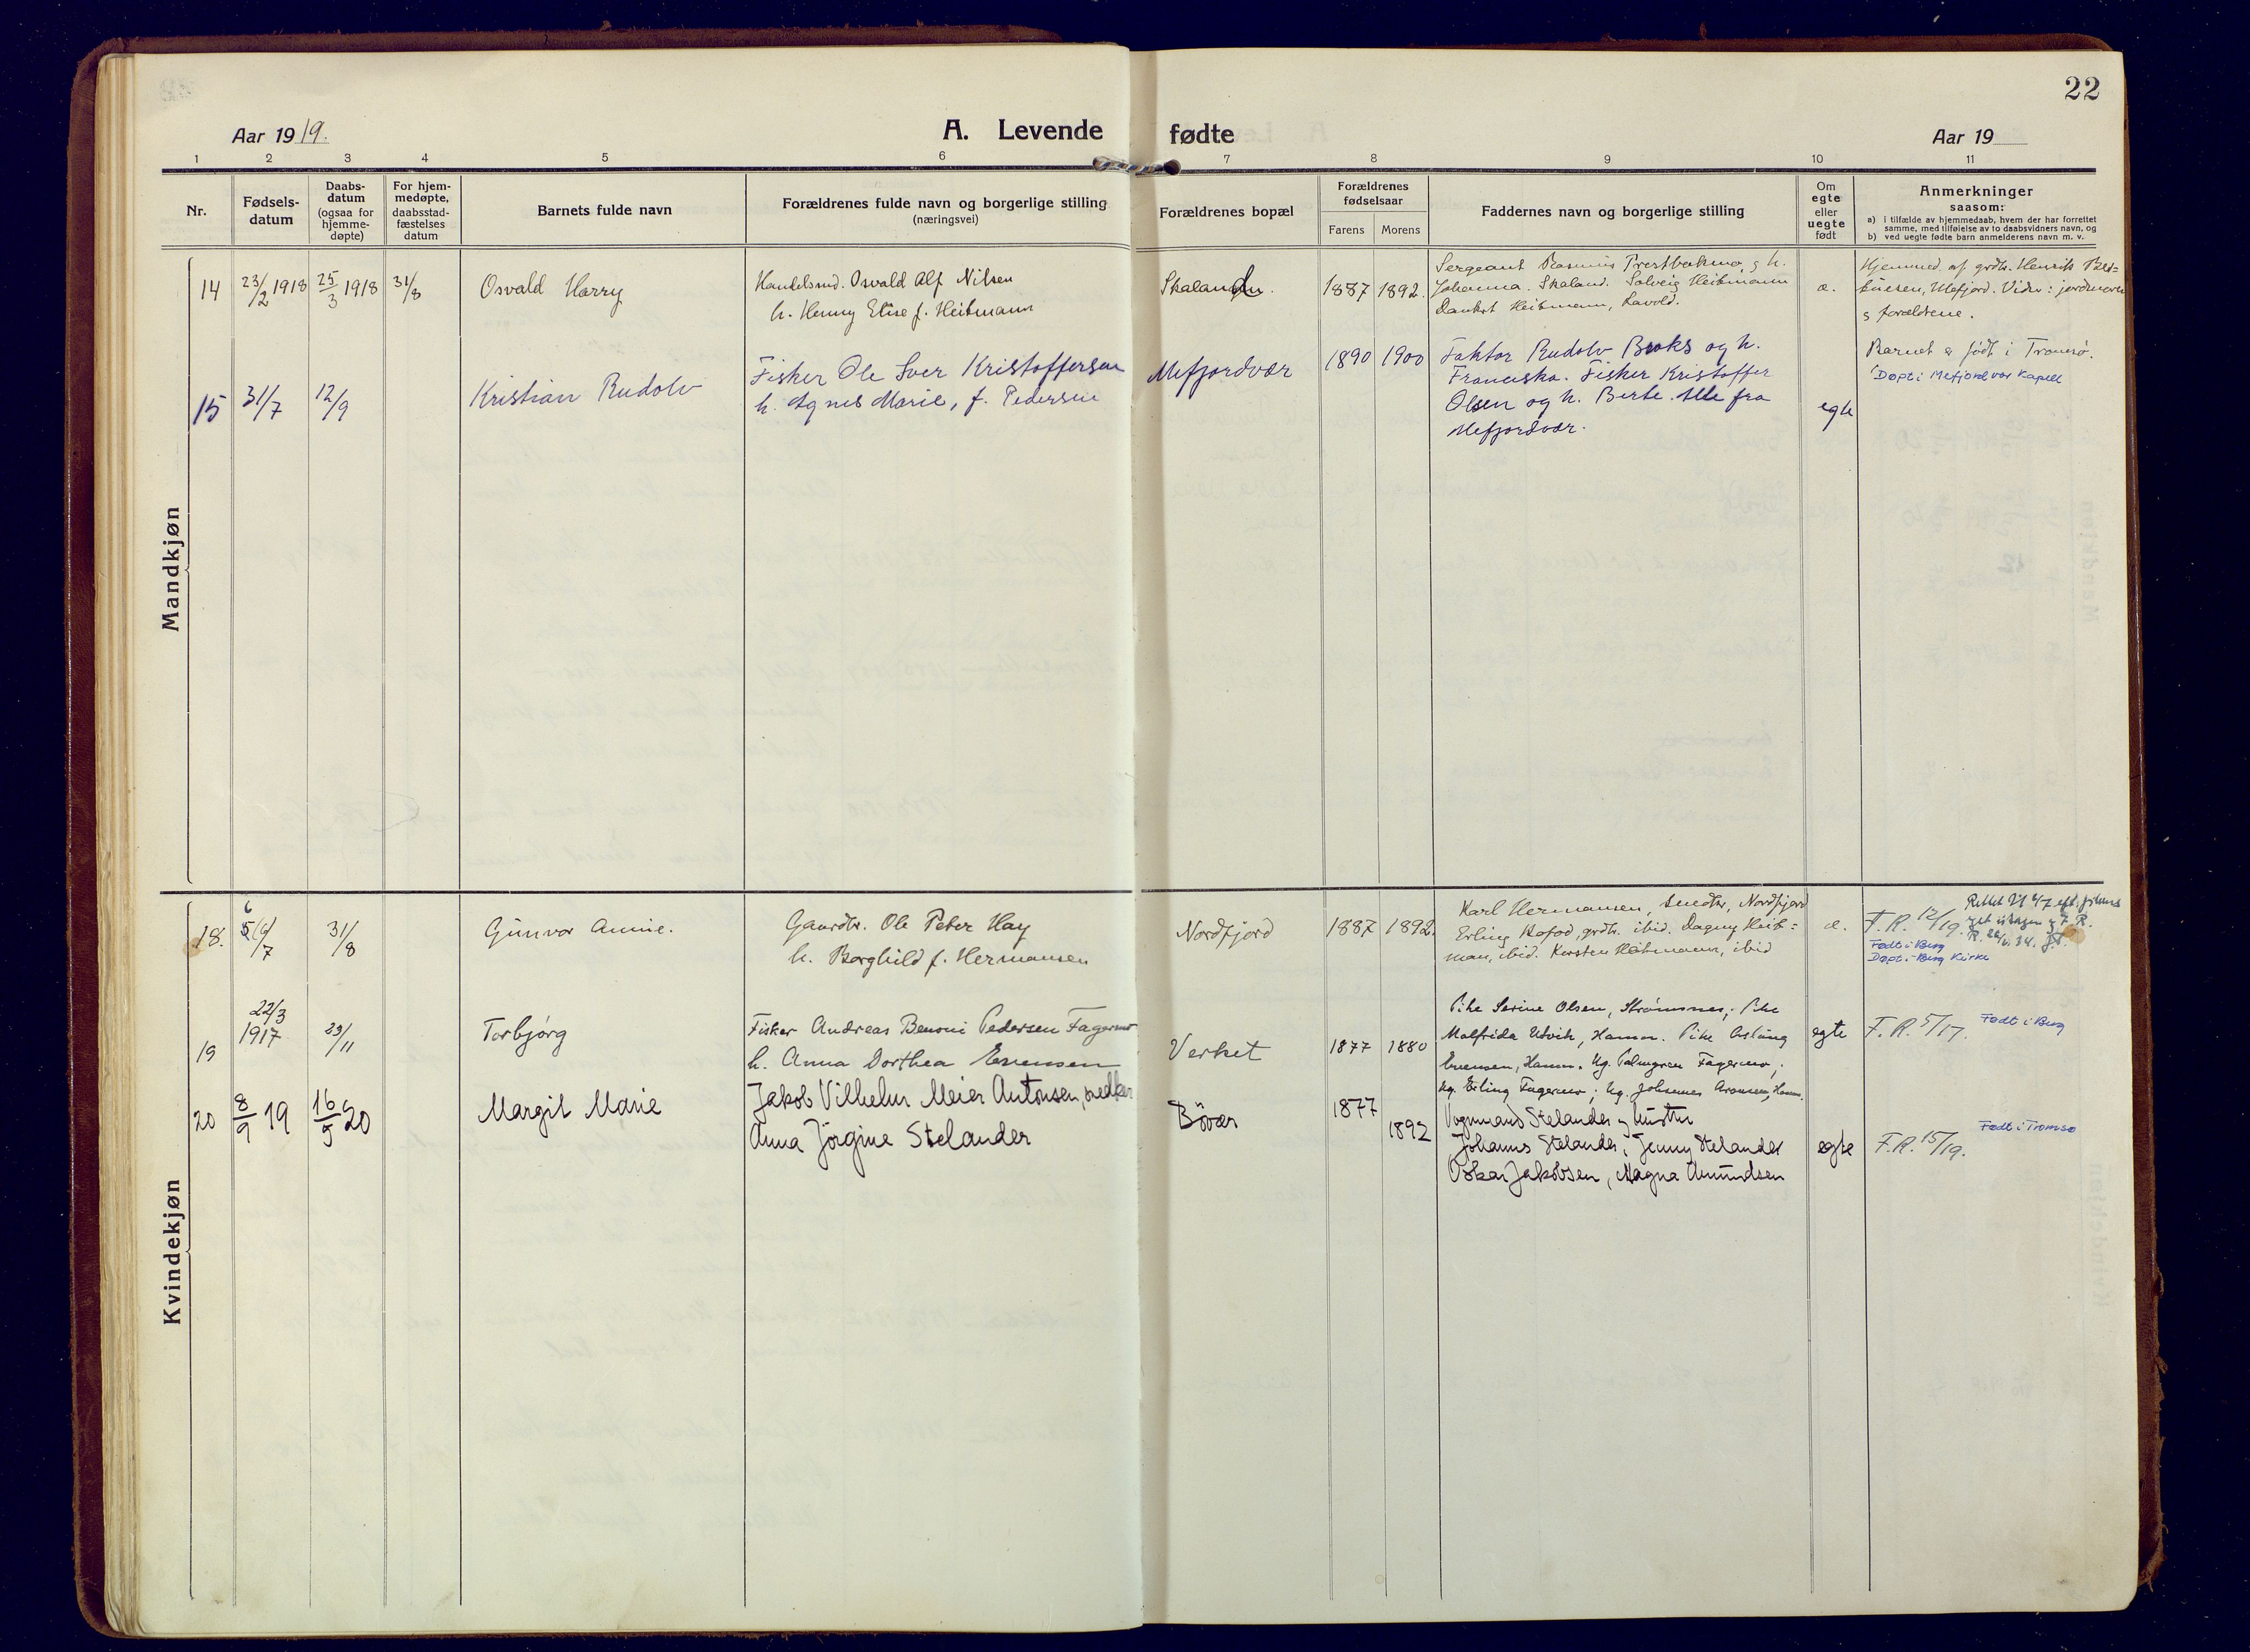 22
Aar 1919.
A. Levende fødte
Aar 19
1 2 3 4 5 6 7 8 9 10 11
Nr.
Fødsels-
datum
Daabs-
datum
(ogsaa for
hjemme-
døpte)
For hjem-
medøpte,
daabsstad-
fæstelses
datum
Barnets fulde navn
Forældrenes fulde navn og borgerlige stilling
(næringsvei)
Forældrenes bopæl
Forældrenes
fødselsaar
Farens
Morens
Faddernes navn og borgerlige stilling
Om
egte
eller
uegte
født
Anmerkninger
saasom:
a) i tilfælde av hjemmedaab, hvem der har forrettet
samme, med tilføielse av to daabsvidners navn, og
b) ved uegte fødte barn anmelderens navn m. v.
Mandkjøn
14
23/2 1918
25/3 1918
31/8
Osvald Harry
Handelsmd. Osvald Alf Nilsen
h. Henny Elise f. Heitmann
Skaland
1887
1892.
Sergeant Rasmus Prestbakmo, s h.
Johanna. Skaland. Solveig Heitmann
Dankert Heitmann, Lavold.
e.
Hjemmed. af grdbr. Henrik
Mefjord. Vidner: jordmoren
s forældrene.
15
31/7
12/9
Kristian Rudolv
Fisker Ole Iver Kristoffersen
h. Agnes Marie, f. Pedersen
Mefjordvær
1890
1900
Faktor Rudolv Broks og h.
Franciska. Fisker Kristoffer
Olsen og h. Berte. Alle fra
Mefjordvær.
egte
Barnet er født i Tromsø.
Døpt i Mefjordvær Kapell
Kvindekjøn
18.
6/7
31/8
Gunvor Annie.
Gaardbr. Ole Peter Hay
h. Borghild f. Hermansen
Nordfjord
1887
1892.
Karl Hermansen, Nordfjord
Erling Kofod, grdbr. ibid. Dagny Heit=
man, ibid. Karsten Heitmann, ibid
e.
F.R. 12/19.
Født i Berg
Døpt i Berg Kirke
19
22/3
1917
23/11
Torbjørg
Fisker Andreas Benoni Pedersen Fagermo
h. Anna Dorthea Evensen
Verket
1877
1880
Pike Serine Olsen, Strømsnes; Pike
Malfrida Utvik, Hamn. Pike Aslaug
Evensen, Hamn. Ug. Palmgren Fagermo;
Ug. Erling Fagermo; Ug. Johannes Aronsen, Hamn.
egte
F.R. 5/17.
Født i Berg
20
8/9 19
16/5 20
Margit Marie
Jakob Vilhelm Meier Antonsen, snedker
Anna Jörgine Stelander
Bövær
1877
1892
Vognmand Stelander og hustru
Johanns Stelander, Jenny Stelander
Oskar Jakobsen, Magna Amundsen
egte
F.R. 15/19.
Født i Tromsø